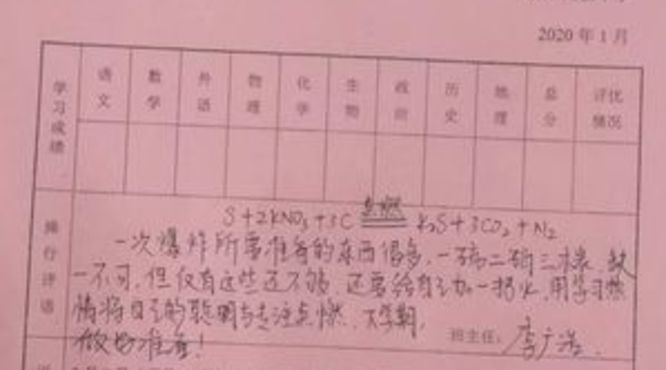 2020 年 1 月
学习成绩 语文 数学 外语 物理 化学 生物 政治 历史 地理 总分 评优情况
S+2KNO₃+3C 点燃 K₂S+3CO₂+N₂
操行评语
一次爆炸所需准备的东西很多,一硫二硝三木炭,缺
一不可,但仅有这些还不够,还要给自己加一把火,用学习热
情将自己的聪明与专注点燃,下学期,
做好准备!
班主任:李广浩